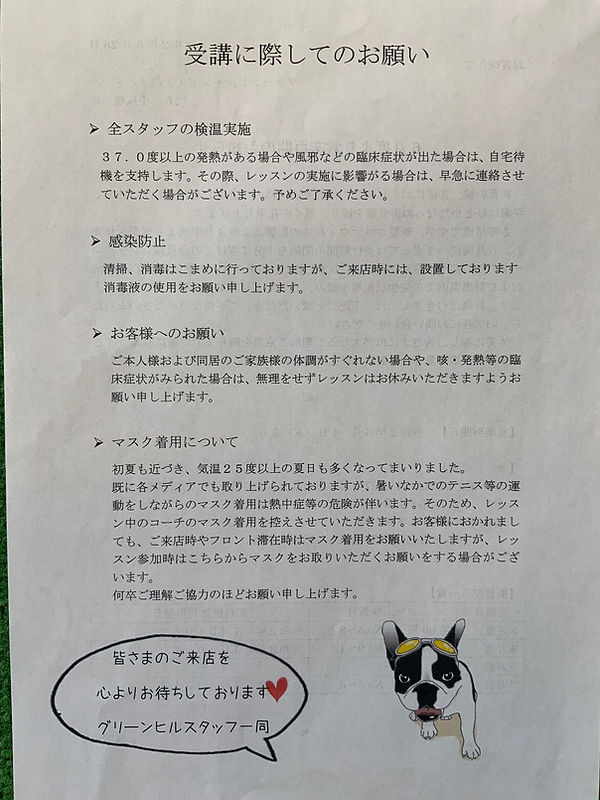 受講に際してのお願い
➢ 全スタッフの検温実施
３７．０度以上の発熱がある場合や風邪などの臨床症状が出た場合は、自宅待
機を支持します。その際、レッスンの実施に影響がる場合は、早急に連絡させ
ていただく場合がございます。予めご了承ください。
➢ 感染防止
清掃、消毒はこまめに行っておりますが、ご来店時には、設置しております
消毒液の使用をお願い申し上げます。
➢ お客様へのお願い
ご本人様および同居のご家族様の体調がすぐれない場合や、咳・発熱等の臨
床症状がみられた場合は、無理をせずレッスンはお休みいただきますようお
願い申し上げます。
➢ マスク着用について
初夏も近づき、気温２５度以上の夏日も多くなってまいりました。
既に各メディアでも取り上げられておりますが、暑いなかでのテニス等の運
動をしながらのマスク着用は熱中症等の危険が伴います。そのため、レッス
ン中のコーチのマスク着用を控えさせていただきます。お客様におかれまし
ても、ご来店時やフロント滞在時はマスク着用をお願いいたしますが、レッ
スン参加時はこちらからマスクをお取りいただくお願いをする場合がござ
います。
何卒ご理解ご協力のほどお願い申し上げます。
皆さまのご来店を
心よりお待ちしております
グリーンヒルスタッフ一同